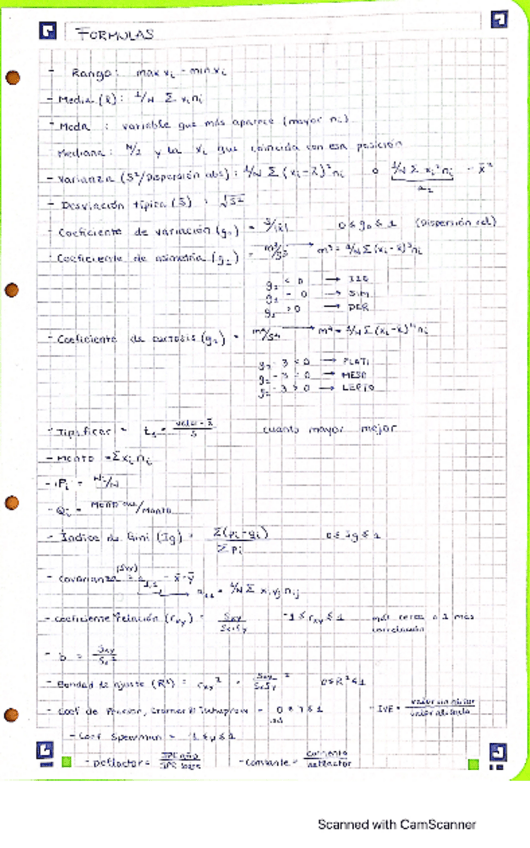 FORMULAS
- Rango: max xi - min xi
- Media (x̄): 1/N Σ xi ni
- Moda : variable que más aparece (mayor ni)
Mediana: N/2 y la xi que coincida con esa posición
- Varianza (S²/Dispersión abs): 1/N Σ (xi - x̄)² ni o 1/N Σ xi² ni - x̄²
a2
- Desviación típica (S) : √S²
- Coeficiente de variación (g0) = S/|x̄| 0 ≤ g0 ≤ 1 (Dispersión rel)
- Coeficiente de asimetría (g1) = m³/S³ → m³ = 1/N Σ (xi - x̄)³ ni
g1 < 0 → IZQ
g1 = 0 → SIM
g1 > 0 → DER
- Coeficiente de curtosis (g2) = m⁴/S⁴ → m⁴ = 1/N Σ (xi - x̄)⁴ ni
g2 - 3 < 0 → PLATI
g2 - 3 = 0 → MESO
g2 - 3 > 0 → LEPTO
- Tipificar = valor - x̄ / S cuanto mayor mejor
- Monto = Σ xi ni
- Pi = Ni/N
- Qi =
- Índice de Gini (Ig) = Σ(pi - qi) / Σ pi 0 ≤ Ig ≤ 1
- Covarianza (Sxy) = a1,1 - x̄·ȳ
a1,1 = 1/N Σ xi yj nij
- Coeficiente relación (rxy) = Sxy / Sx Sy -1 ≤ rxy ≤ 1 más cerca a 1 más correlación
- b = Sxy / Sx²
- Bondad de ajuste (R²) = rxy² = 0 ≤ R² ≤ 1
- Coef de Pearson,
- Coef Spearman =
- Deflactor = - Constante = corriente / deflactor
Scanned with CamScanner